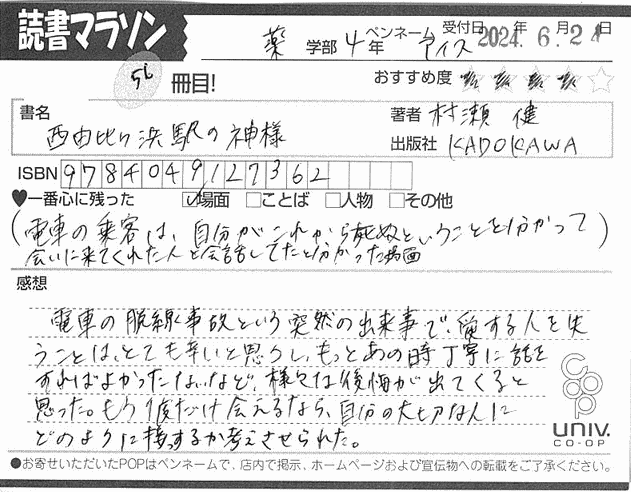 読書マラソン
薬 学部 4年 ペンネーム アイス 受付日 2024年6月21日
51 冊目! おすすめ度 ★★★★☆
書名 西由比ヶ浜駅の神様
著者 村瀬 健
出版社 KADOKAWA
ISBN 9784049127362
♥一番心に残った ☑場面 □ことば □人物 □その他
(電車の乗客は、自分がこれから死ぬということを分かって
会いに来てくれた人と会話してたと分かった場面)
感想
電車の脱線事故という突然の出来事で、愛する人を失
うことは、とても辛いと思うし、もっとあの時丁寧に話を
すればよかったななど、様々な後悔が出てくると
思った。もう1度だけ会えるなら、自分の大切な人に
どのように接するか考えさせられた。
coop
UNIV.
CO-OP
●お寄せいただいたPOPはペンネームで、店内で掲示、ホームページおよび宣伝物への転載をご了承ください。